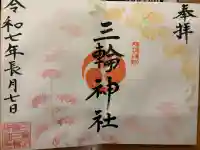 奉拝
三輪神社
令和七年長月七日